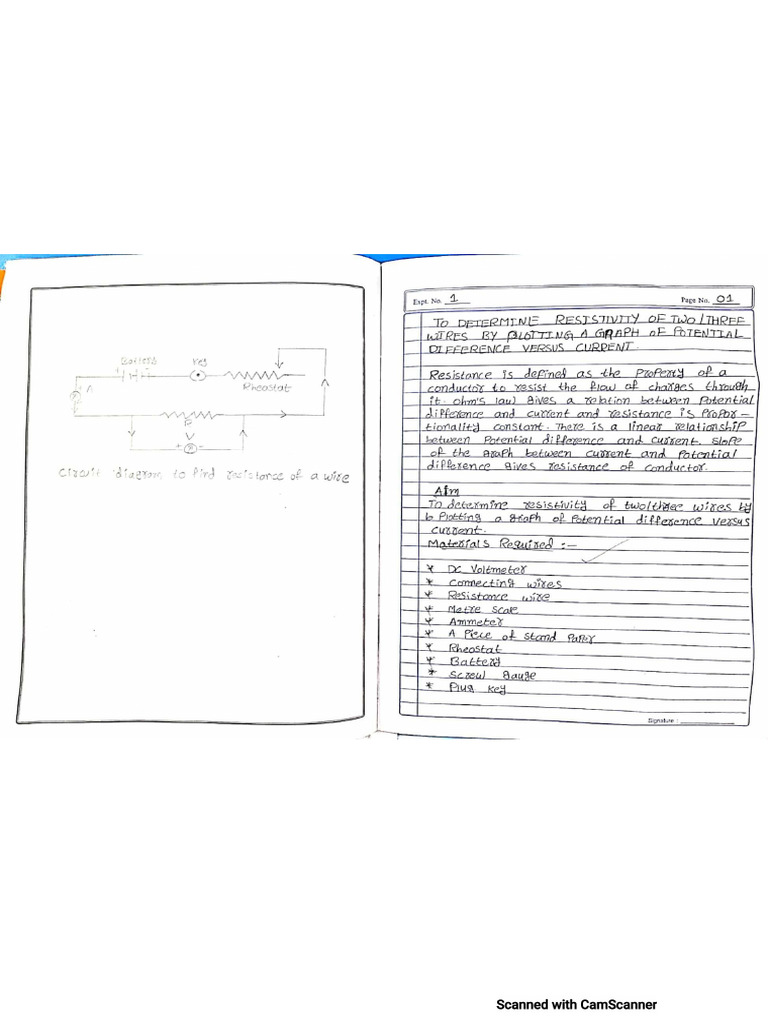 Battery
Key
Rheostat
A
V
+
-
Circuit diagram to find resistance of a wire
Expt. No. 1
Page No. 01
TO DETERMINE RESISTIVITY OF TWO/THREE
WIRES BY PLOTTING A GRAPH OF POTENTIAL
DIFFERENCE VERSUS CURRENT.
Resistance is defined as the Property of a
conductor to resist the flow of charges through
it. ohm's law gives a relation between Potential
difference and current and resistance is Propor-
tionality constant. There is a linear relationship
between Potential difference and current. slope
of the graph between current and Potential
difference gives resistance of conductor.
Aim
To determine resistivity of two/three wires by
b Plotting a graph of Potential difference versus
current.
Materials Required :-
* DC Voltmeter
* Connecting wires
* Resistance wire
* Metre scale
* Ammeter
* A Piece of Stand Paper
* Rheostat
* Battery
* Screw gauge
* Plug key
Signature :
Scanned with CamScanner